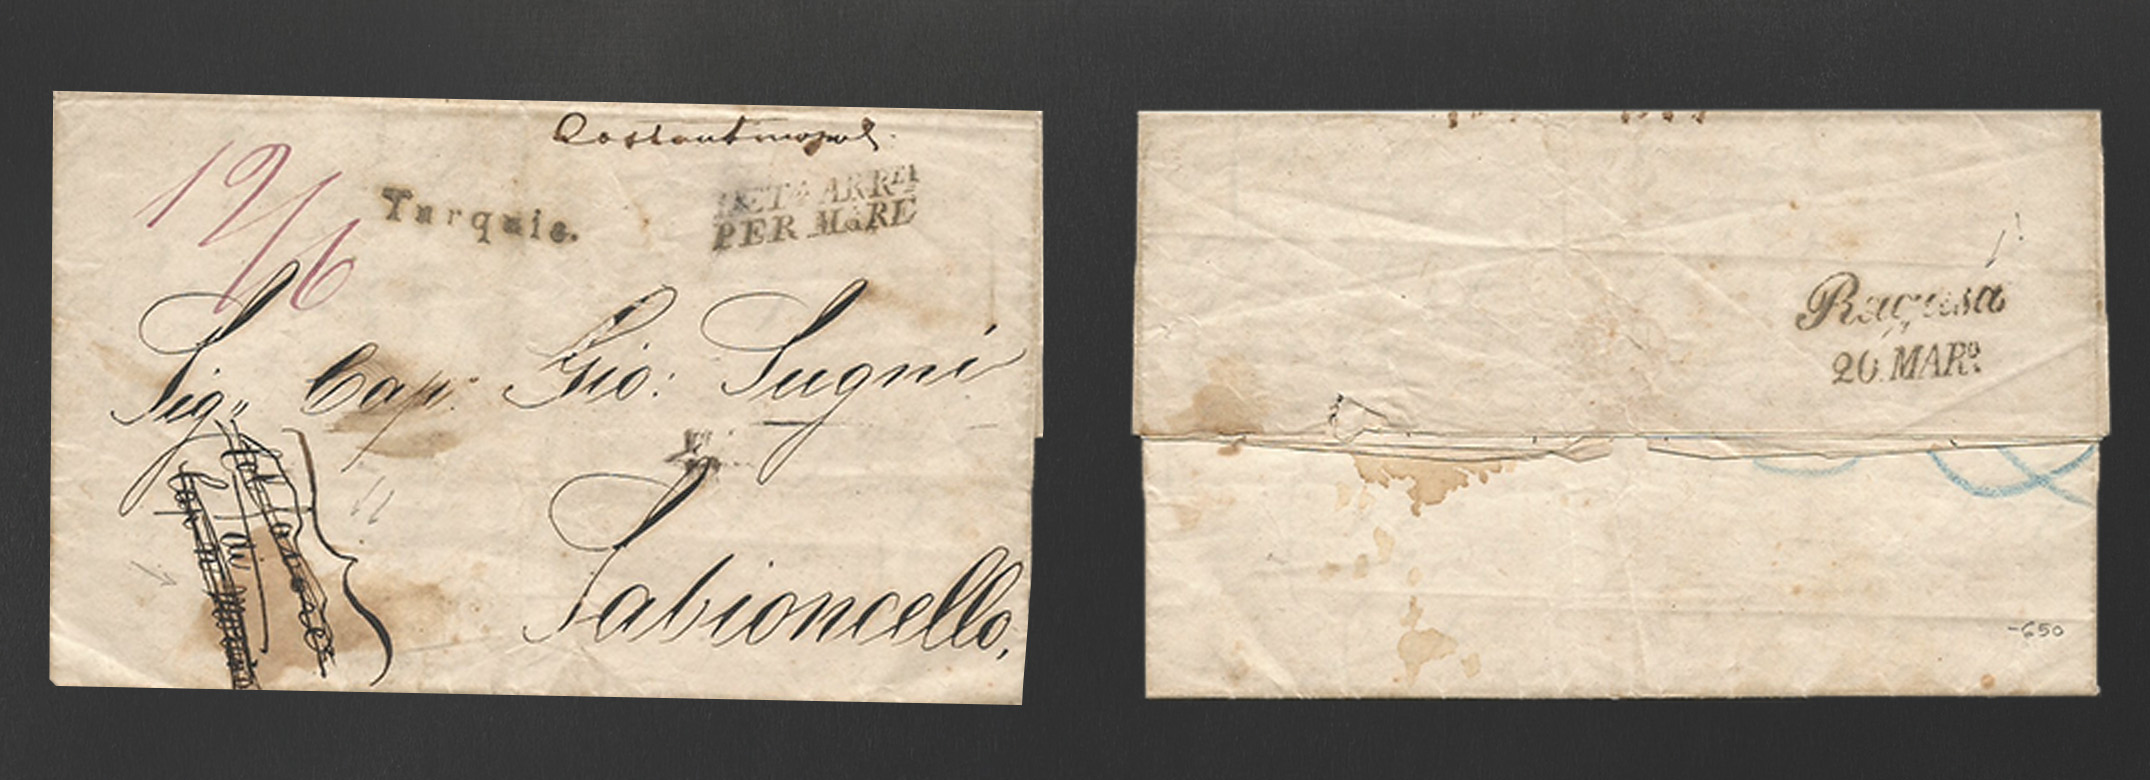 Costantinopol.
19/6
Turquie.
LETA ARRta
PER MARE
Sig" Cap. Gio: Sugni
Sabioncello,
Ragusa
20. MARo.
-650